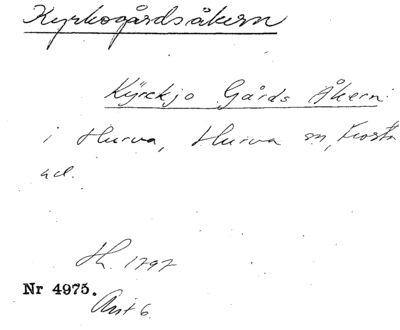 Kyrkogårdsåkern
Kÿrckjo Gårds Åkern
i Hurva, Hurva sn, Frosta
hd.
H. 1797
Nr 4975.
6.